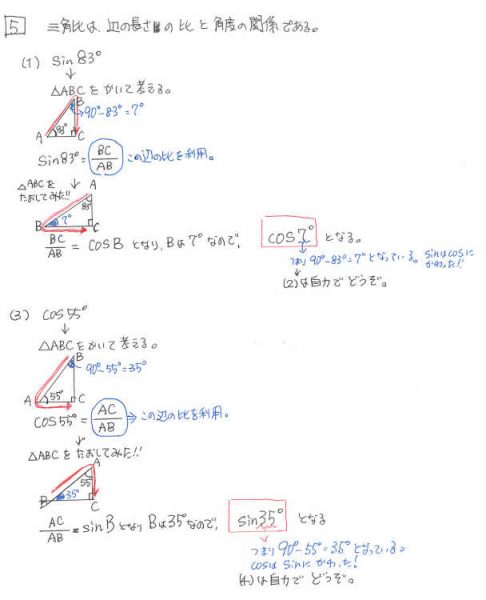 5 三角比は、辺の長さの比と角度の関係である。
(1) sin83°
↓
△ABCをかいて考える。
B
90°-83°=7°
A 83° C
sin83°= BC/AB この辺の比を利用。
↓
△ABCを
たおしてみた!!
A
83°
B 7° C
BC/AB = cosB となり、Bは7°なので、 cos7° となる。
つまり90°-83°=7°となっている。sinはcosに
かわった!!
(2)は自力でどうぞ。
(3) cos55°
↓
△ABCをかいて考える。
B
90°-55°=35°
A 55° C
cos55°= AC/AB → この辺の比を利用。
↓
△ABCをたおしてみた!!
A
55°
B 35° C
AC/AB = sinBとなりBは35°なので、 sin35° となる
つまり90°-55°=35°となっている。
cosはsinにかわった!
(4)は自力でどうぞ。